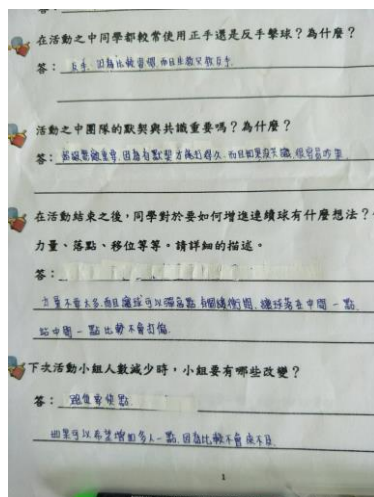 在活動之中同學都較常使用正手還是反手擊球？為什麼？
答：反手，因為比較習慣，而且比較只教反手
活動之中團隊的默契與共識重要嗎？為什麼？
答：很重要，因為有默契才能打得久，而且如果沒共識，很容易吵架
在活動結束之後，同學對於要如何增進連續球有什麼想法？
力量、落點、移位等等。請詳細的描述。
答：
力量不要太多，而且讓球可以彈高點，有個緩衝期，讓球落在中間一點
站中間一點比較不會打偏
下次活動小組人數減少時，小組要有哪些改變？
答：跑位要快點
如果可以希望增加多人一點，因為比較不會來不及
1